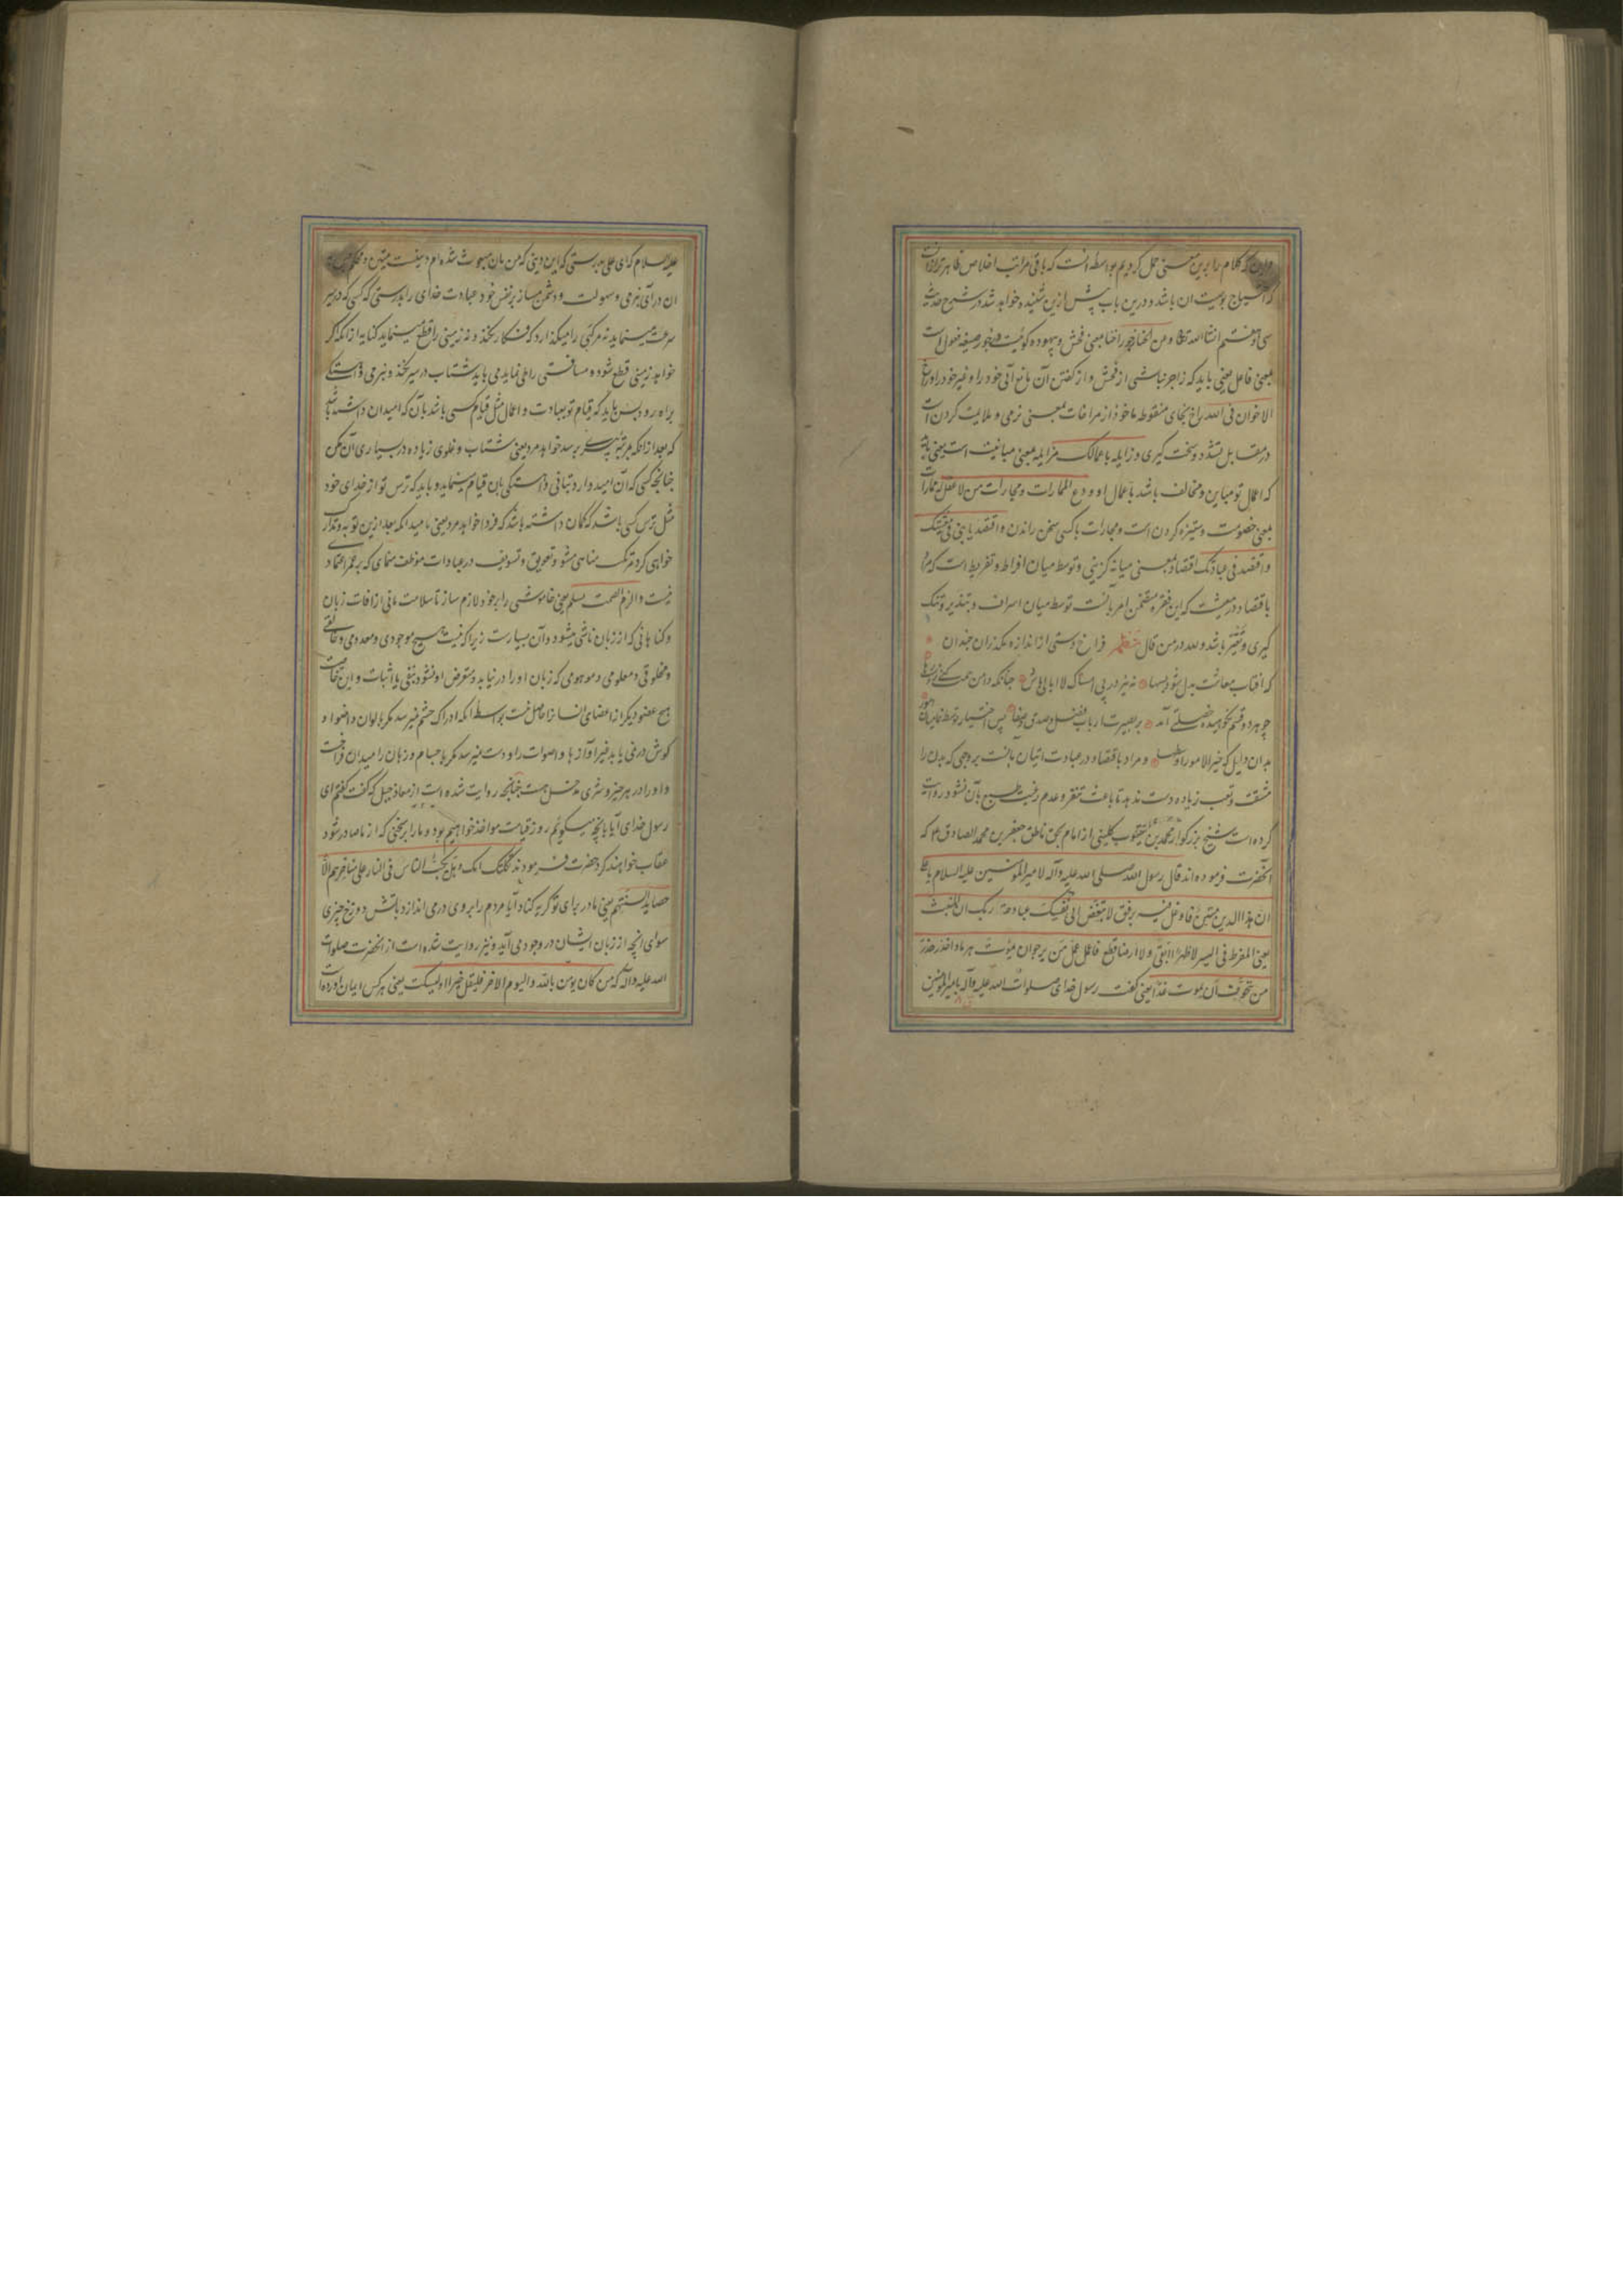 و این که کلام را برین معنی حمل کردیم بواسطه آنست که باقی مراتب اخلاص ظاهرتر از آنست
که احتیاج بوصیت آن باشد و درین باب پیش ازین شنیده و خواهد شد در شرح حدیث
سی و هفتم انشا الله تعالی و من الخنا زجورا خنا بمعنی فحش و بیهوده گوئیست و زجور صیغه فعول است
بمعنی فاعل یعنی باید که زاجر باشی از فحش و از گفتن آن مانع آئی خود را و غیر خود را و راخ
الاخوان فی الله راخ بخای منقوطه ماخوذ از مراخات بمعنی نرمی و ملایمت کردن است
در مقابل تشدد و سخت گیری و زایله باعمالک مزایله بمعنی مباینت است یعنی باید
که اعمال تو مباین و مخالف باشد باعمال او و دع الممارات و مجارات من لا عقل له ممارات
بمعنی خصومت و ستیزه کردن است و مجارات با کسی سخن راندن و اقتصد یا بنی فی معیشتک
و اقتصد فی عبادتک اقتصاد بمعنی میانه گزینی و توسط میان افراط و تفریط است که مراد
باقتصاد در معیشت که این فقره متضمن امر بآنست توسط میان اسراف و تبذیر و تنگ
گیری و تقتیر باشد و لله در من قال نظم فراخ دستی از اندازه مگذران چندان
که آفتاب معاشت بدل شود بسها نه نیز در پی امساک لا ابالی باش چنانکه دامن همت کنی ز دست رها
چو هر دو قسم نکوهیده خصلتی آمد بر بصیرت ارباب فضل و صدق و صفا پس اختیار توسط نما در آن امور
بدان دلیل که خیر الامور اوسطها و مراد باقتصاد در عبادت اتیان بآنست بروجهی که بدن را
مشقت و تعب زیاده دست ندهد تا باعث تنفر و عدم رغبت طبع بآن نشود روایت
کرده است شیخ بزرگوار محمد بن یعقوب کلینی از امام بحق ناطق جعفر بن محمد الصادق ع که
آنحضرت فرموده اند قال رسول الله صلی الله علیه وآله لامیر المؤمنین علیه السلام یا علی
ان هذا الدین متین فاوغل فیه برفق لا تبغض الی نفسک عبادة ربک ان المنبت
یعنی المفرط فی السیر لا ظهرا ابقی ولا ارضا قطع فاعمل عمل من یرجو ان یموت هرما و احذر حذر
من یتخوف ان یموت غدا یعنی گفت رسول خدای صلوات الله علیه وآله بامیر المؤمنین
علیه السلام که ای علی بدرستی که این دینی که من بآن مبعوث شده ام دینیست متین و محکم پس به
آن درآی بنرمی و سهولت و دشمن مساز بر نفس خود عبادت خدای را بدرستی که کسی که در سیر
سرعت مینماید نه مرکبی را میگذارد که فنکار نکند و نه زمینی را قطع مینماید کنایه از آنکه اگر
خواهد زمینی قطع شود و مسافتی را طی نماید می باید شتاب در سیر نکند و بنرمی و آهستگی
براه رود پس باید که قیام تو بعبادت و اعمال مثل قیام کسی باشد بآن که امید آن داشته باشد
که بعد از آنکه بمرتبه پیری برسد خواهد مرد یعنی شتاب و غلوی زیاده در بسیاری آن مکن
چنانچه کسی که آن امید دارد بتانی و آهستگی بآن قیام مینماید و باید که ترس تو از خدای خود
مثل ترس کسی باشد که گمان داشته باشد که فردا خواهد مرد یعنی بامید آنکه بعد ازین توبه و تدارک
خواهی کرد مرتکب مناهی مشو و تعویق و تسویف در عبادات موظف منمای که بر عمر اعتمادی
نیست و الزم الصمت تسلم یعنی خاموشی را بر خود لازم ساز تا سلامت مانی از آفات زبان
و گناهانی که از زبان ناشی میشود و آن بسیارست زیرا که نیست هیچ موجودی و معدومی و خالقی
و مخلوقی و معلومی و موهومی که زبان او را در نیابد و متعرض او نشود بنفی یا اثبات و این حالت
هیچ عضو دیگر از اعضای انسان را حاصل نیست بواسطه آنکه ادراک چشم نمیرسد مگر بالوان و اضواء و
گوش در نمی یابد غیر آوازها و اصوات را و دست نمیرسد مگر باجسام و زبان را میدان فراخیست
و او را در هر خیر و شری مدخل هست چنانچه روایت شده است از معاذ جبل که گفت گفتم ای
رسول خدای آیا بآنچه میگوئیم روز قیامت مواخذ خواهیم بود و ما را بر سخنی که از ما صادر شود
عقاب خواهند کرد حضرت فرمودند ثکلتک امک و هل یکب الناس فی النار علی مناخرهم الا
حصاید السنتهم یعنی مادر برای تو گریه کناد آیا مردم را بر وی در می اندازد بآتش دوزخ چیزی
سوای آنچه از زبان ایشان در وجود می آید و نیز روایت شده است از آنحضرت صلوات
الله علیه وآله که من کان یؤمن بالله و الیوم الآخر فلیقل خیرا او لیسکت یعنی هر کس ایمان آورده